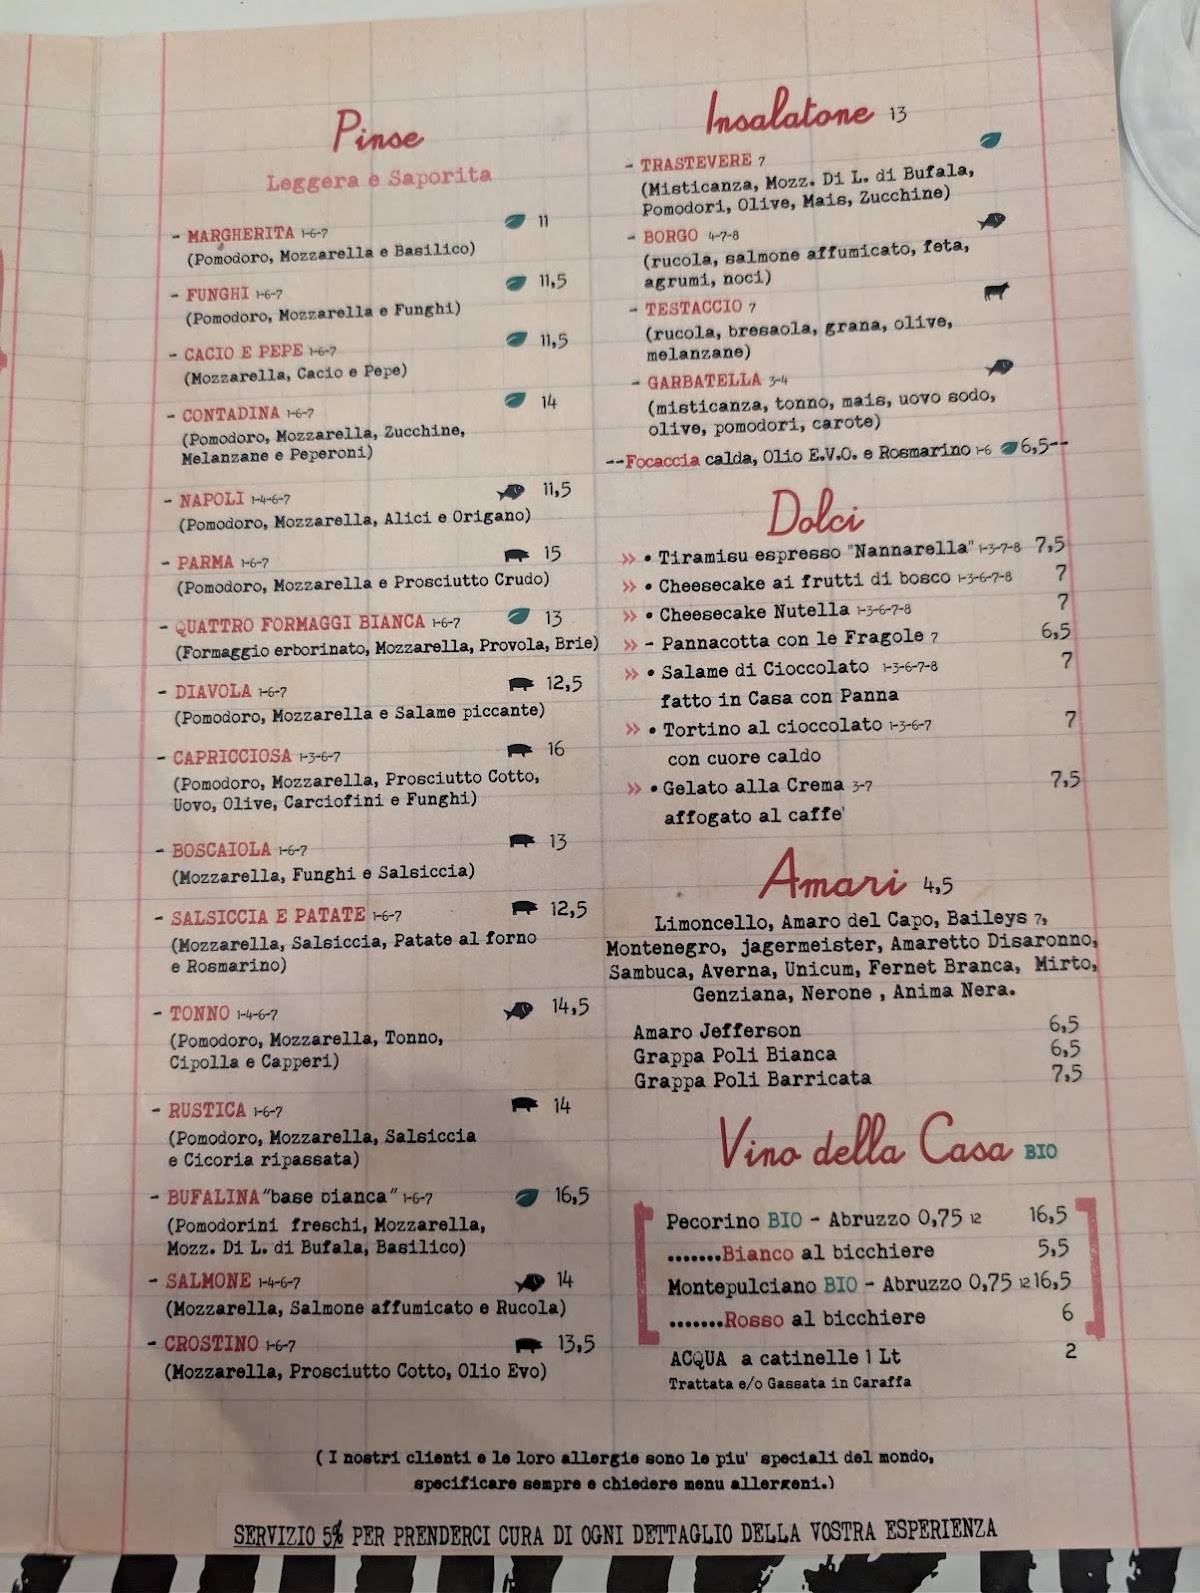 Pinse
Leggera e Saporita
- MARGHERITA 1-6-7 11
(Pomodoro, Mozzarella e Basilico)
- FUNGHI 1-6-7 11,5
(Pomodoro, Mozzarella e Funghi)
- CACIO E PEPE 1-6-7 11,5
(Mozzarella, Cacio e Pepe)
- CONTADINA 1-6-7 14
(Pomodoro, Mozzarella, Zucchine,
Melanzane e Peperoni)
- NAPOLI 1-4-6-7 11,5
(Pomodoro, Mozzarella, Alici e Origano)
- PARMA 1-6-7 15
(Pomodoro, Mozzarella e Prosciutto Crudo)
- QUATTRO FORMAGGI BIANCA 1-6-7 13
(Formaggio erborinato, Mozzarella, Provola, Brie)
- DIAVOLA 1-6-7 12,5
(Pomodoro, Mozzarella e Salame piccante)
- CAPRICCIOSA 1-3-6-7 16
(Pomodoro, Mozzarella, Prosciutto Cotto,
Uovo, Olive, Carciofini e Funghi)
- BOSCAIOLA 1-6-7 13
(Mozzarella, Funghi e Salsiccia)
- SALSICCIA E PATATE 1-6-7 12,5
(Mozzarella, Salsiccia, Patate al forno
e Rosmarino)
- TONNO 1-4-6-7 14,5
(Pomodoro, Mozzarella, Tonno,
Cipolla e Capperi)
- RUSTICA 1-6-7 14
(Pomodoro, Mozzarella, Salsiccia
e Cicoria ripassata)
- BUFALINA "base bianca" 1-6-7 16,5
(Pomodorini freschi, Mozzarella,
Mozz. Di L. di Bufala, Basilico)
- SALMONE 1-4-6-7 14
(Mozzarella, Salmone affumicato e Rucola)
- CROSTINO 1-6-7 13,5
(Mozzarella, Prosciutto Cotto, Olio Evo)
Insalatone 13
- TRASTEVERE 7
(Misticanza, Mozz. Di L. di Bufala,
Pomodori, Olive, Mais, Zucchine)
- BORGO 4-7-8
(rucola, salmone affumicato, feta,
agrumi, noci)
- TESTACCIO 7
(rucola, bresaola, grana, olive,
melanzane)
- GARBATELLA 3-4
(misticanza, tonno, mais, uovo sodo,
olive, pomodori, carote)
--Focaccia calda, Olio E.V.O. e Rosmarino 1-6 6,5--
Dolci
» • Tiramisu espresso "Nannarella" 1-3-7-8 7,5
» • Cheesecake ai frutti di bosco 1-3-6-7-8 7
» • Cheesecake Nutella 1-3-6-7-8 7
» - Pannacotta con le Fragole 7 6,5
» • Salame di Cioccolato 1-3-6-7-8 7
fatto in Casa con Panna
» • Tortino al cioccolato 1-3-6-7 7
con cuore caldo
» • Gelato alla Crema 3-7 7,5
affogato al caffe'
Amari 4,5
Limoncello, Amaro del Capo, Baileys 7,
Montenegro, jagermeister, Amaretto Disaronno,
Sambuca, Averna, Unicum, Fernet Branca, Mirto,
Genziana, Nerone , Anima Nera.
Amaro Jefferson 6,5
Grappa Poli Bianca 6,5
Grappa Poli Barricata 7,5
Vino della Casa BIO
Pecorino BIO - Abruzzo 0,75 12 16,5
.......Bianco al bicchiere 5,5
Montepulciano BIO - Abruzzo 0,75 12 16,5
.......Rosso al bicchiere 6
ACQUA a catinelle 1 Lt 2
Trattata e/o Gassata in Caraffa
( I nostri clienti e le loro allergie sono le piu' speciali del mondo,
specificare sempre e chiedere menu allergeni.)
SERVIZIO 5% PER PRENDERCI CURA DI OGNI DETTAGLIO DELLA VOSTRA ESPERIENZA